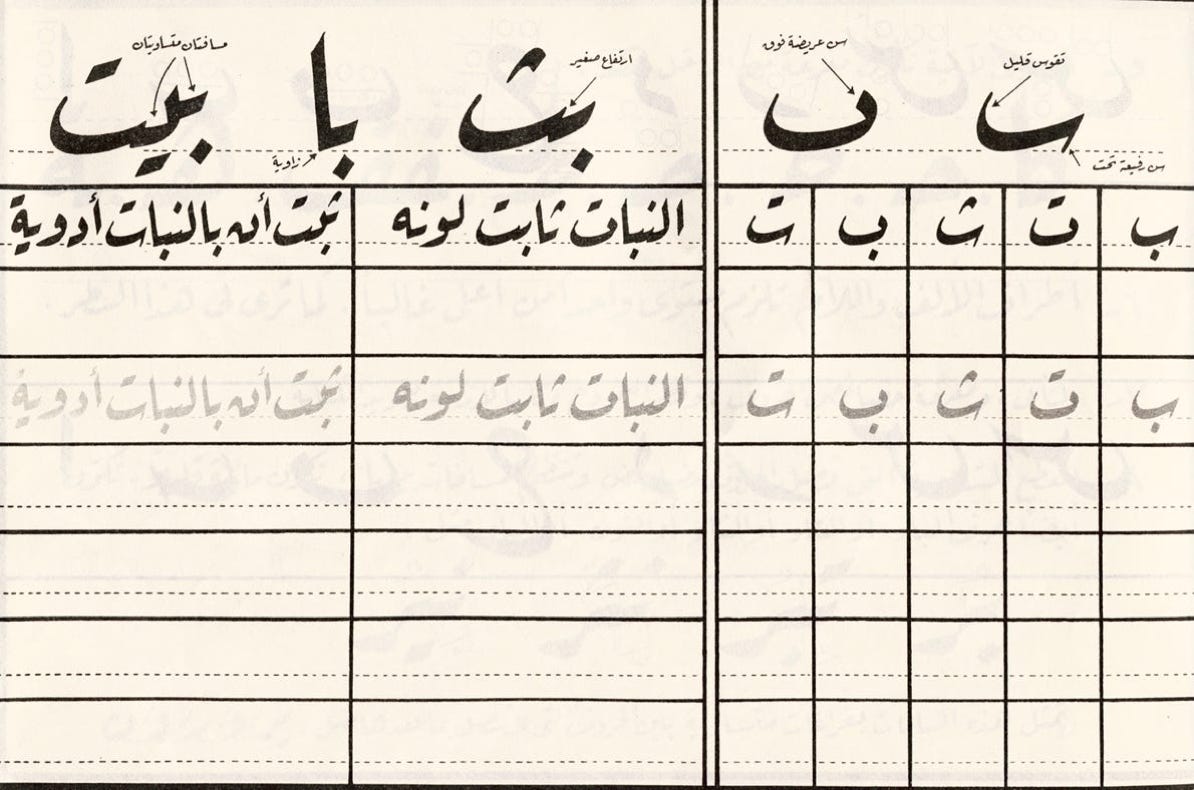 تقوس قليل سن عريضة فوق ارتفاع صغير مسافتان متساويتان
ٮ ٮ بث با بيت
سن رفيعة تحت زاوية
ب ت ث ب ت النبات ثابت لونه ثبت أن بالنبات أدوية
ب ت ث ب ت النبات ثابت لونه ثبت أن بالنبات أدوية